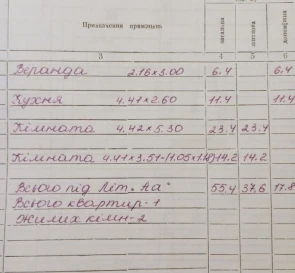 Призначення приміщень загальна житлова допоміжна
3 4 5 6
Веранда 2.16×3.00 6.4 6.4
Кухня 4.41×2.60 11.4 11.4
Кімната 4.42×5.30 23.4 23.4
Кімната 4.41×3.51-(1.05×1.18) 14.2 14.2
Всього під Літ. Аа' 55.4 37.6 17.8
Всього квартир-1
Жилих кімн-2